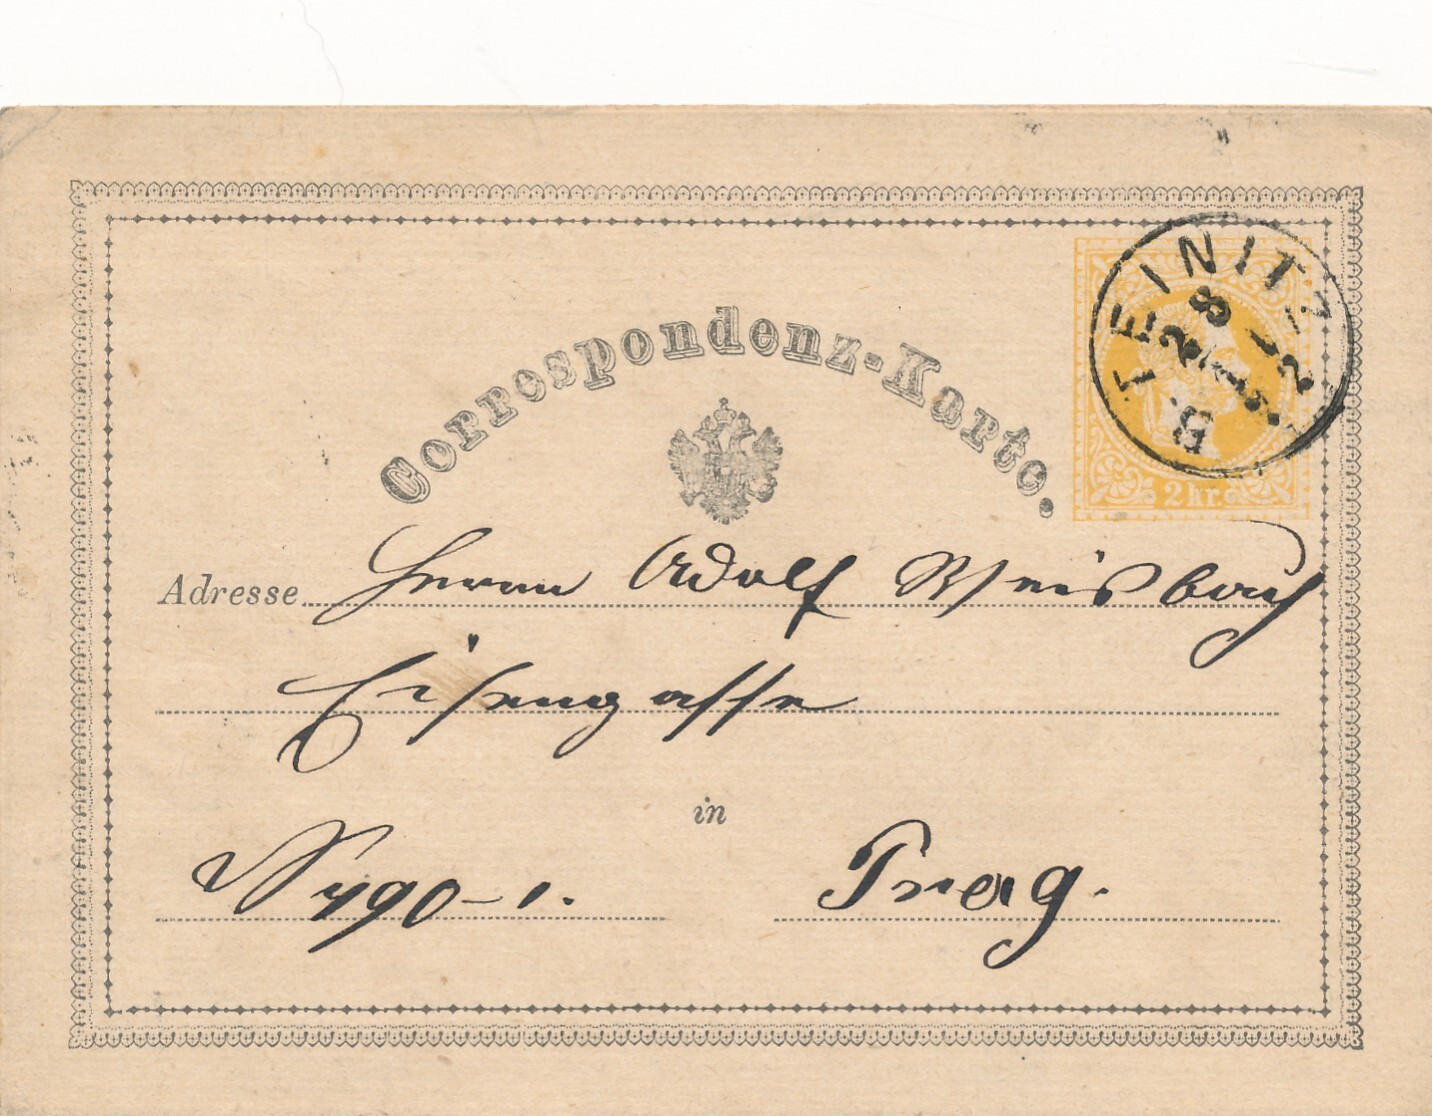 Correspondenz-Karte.
B. TEINITZ
28
2 kr.
Adresse Herrn Adolf Weisbach
Eisengasse
in
N 490-1. Prag.